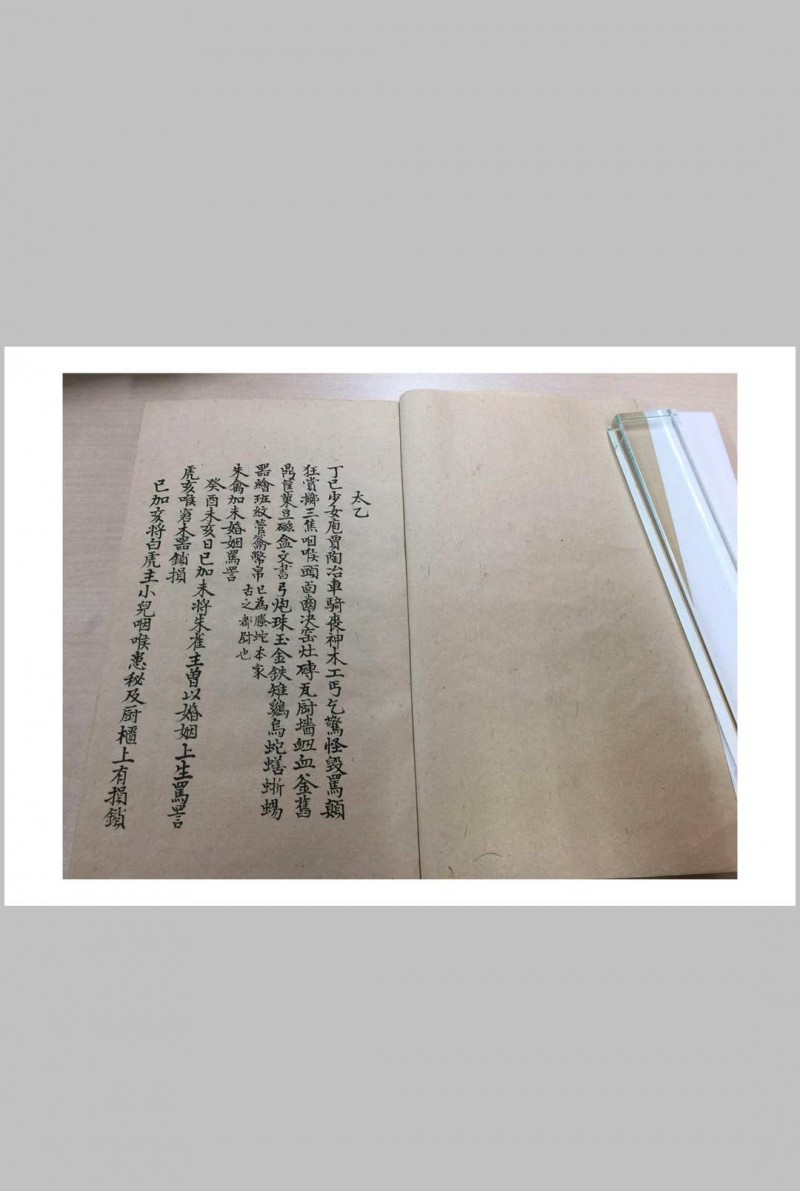 太乙
丁巳少女庖賈陶冶車騎喪神木工丐乞驚怪毀罵顛
狂賞擲三焦咽喉頭面齒決窑灶磚瓦厨墻衂血釜舊
鼎筐菓豆磁盒文書弓炮珠玉金鉄雉鷄烏蛇蟮蜥蜴
器繪班紋管籥幣帛
巳為螣蛇本家
古之都尉也
朱禽加未婚姻罵詈
癸酉未亥日巳加未將朱雀主曽以婚姻上生罵詈
虎亥喉窘木器鎖損
巳加亥將白虎主小兒咽喉患秘及厨櫃上有損鎖